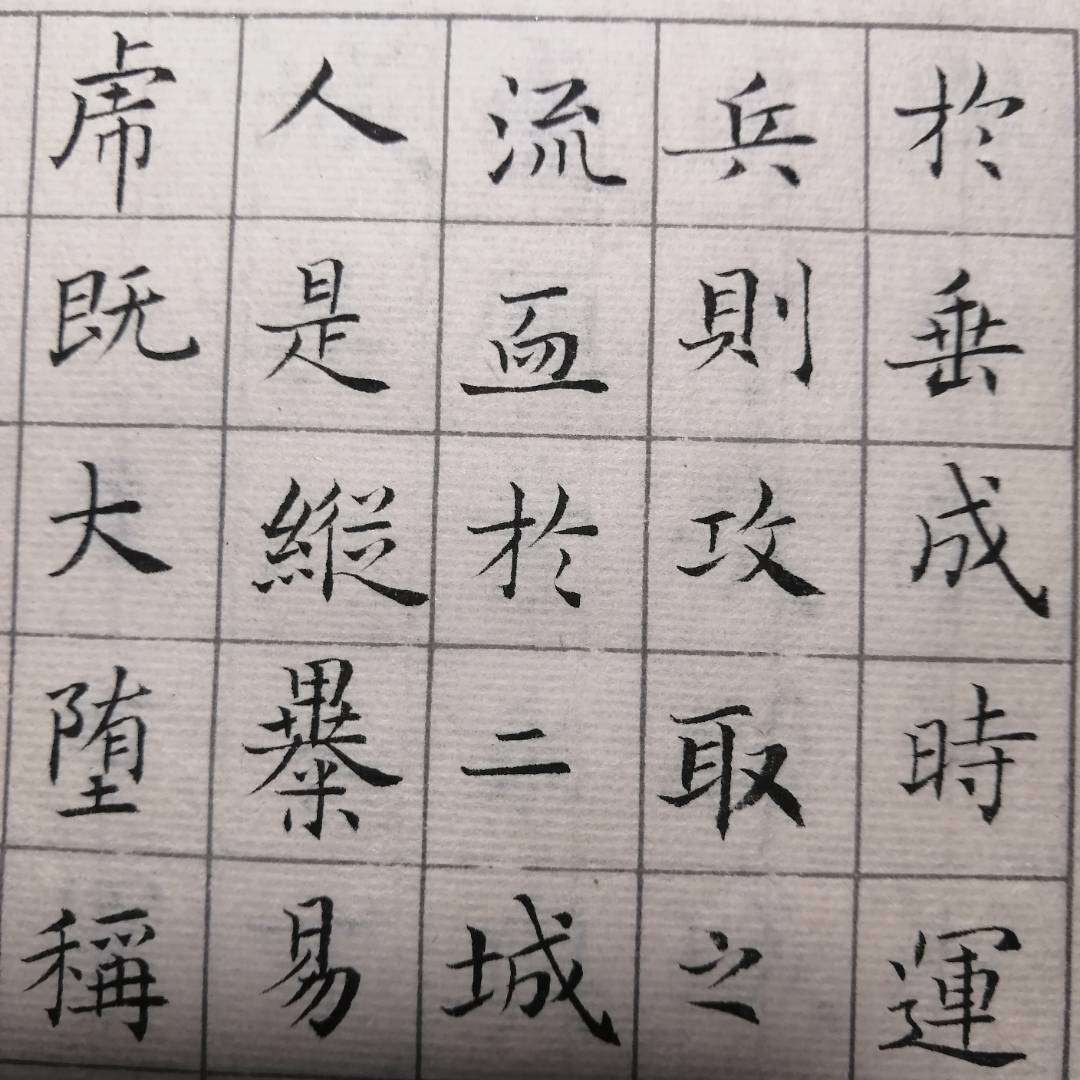 於垂成時運
兵則攻取之
流血於二城
人是縱暴易
虎既大堕稱